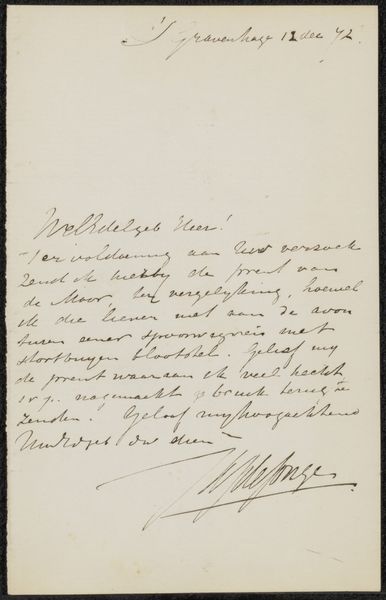 's Gravenhage 12 dec 72.
WelEdelgeb Heer!
Ter voldoening aan Uw verzoek
zend ik hierby de prent van
de Moor, ter vergelyking, hoewel
ik die liever niet aan de avon
turen eener spoorwegreis met
stortbuyen blootstel. Gelief my
de prent waaraan ik veel hecht
s.v.p. nagemaakt gebruik terug te
zenden. Geloof my hoogachtend
UwEdgeb dw dien
de Jonge